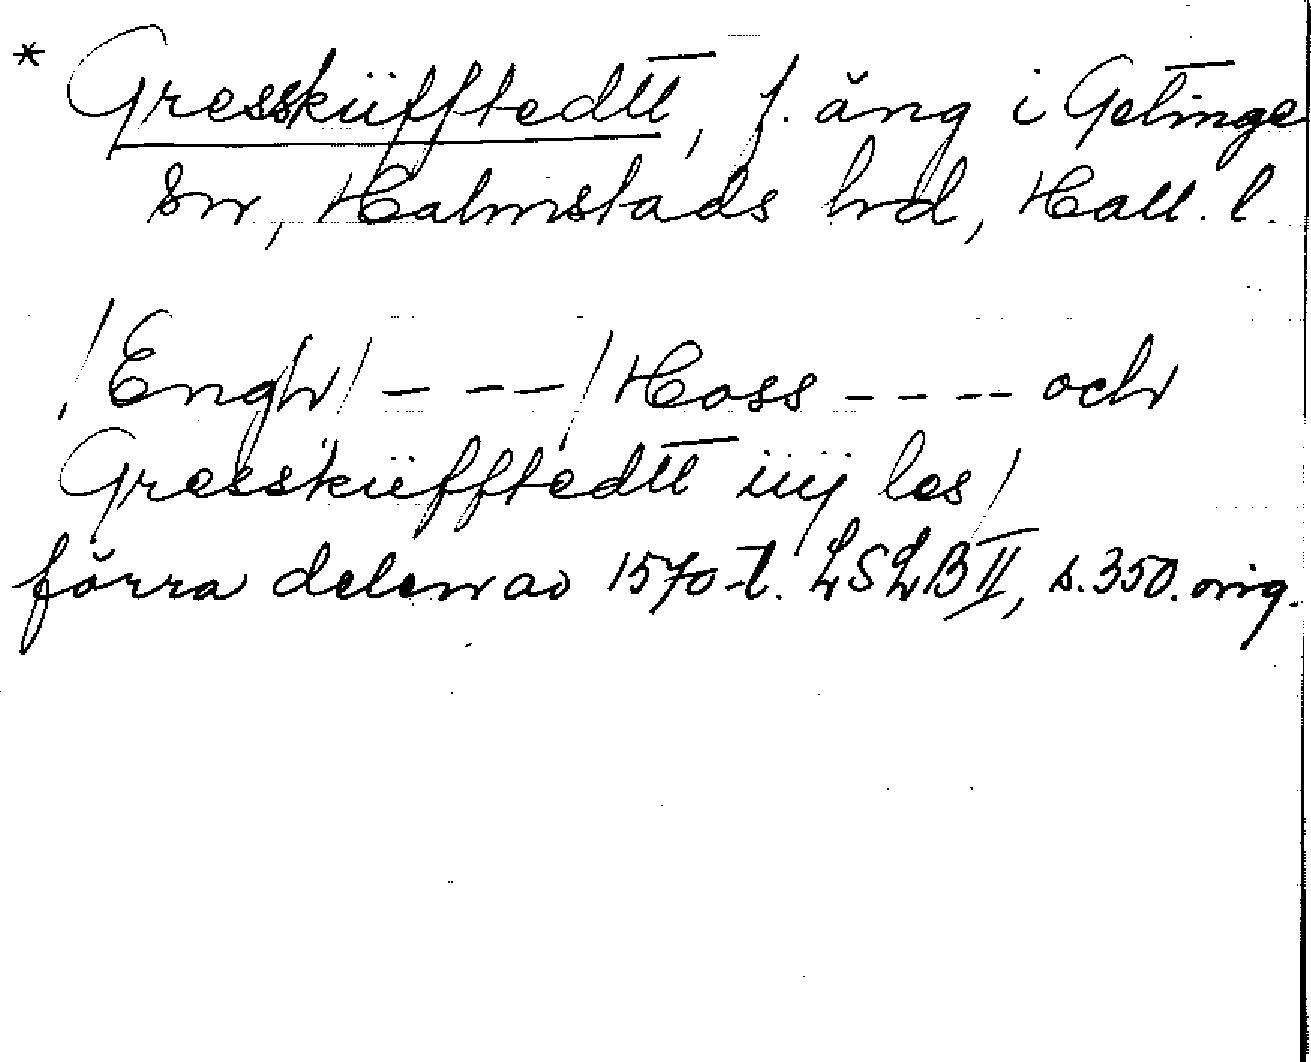 * Gresskiifftedtt, f. äng i Getinge
sn, Halmstads hrd, Hall. l.
/Engh/ - - - /Hoss - - - - och
Gresskiifftedtt iiij les/
förra delen av 1570-t. LSLB II, s. 350. orig.